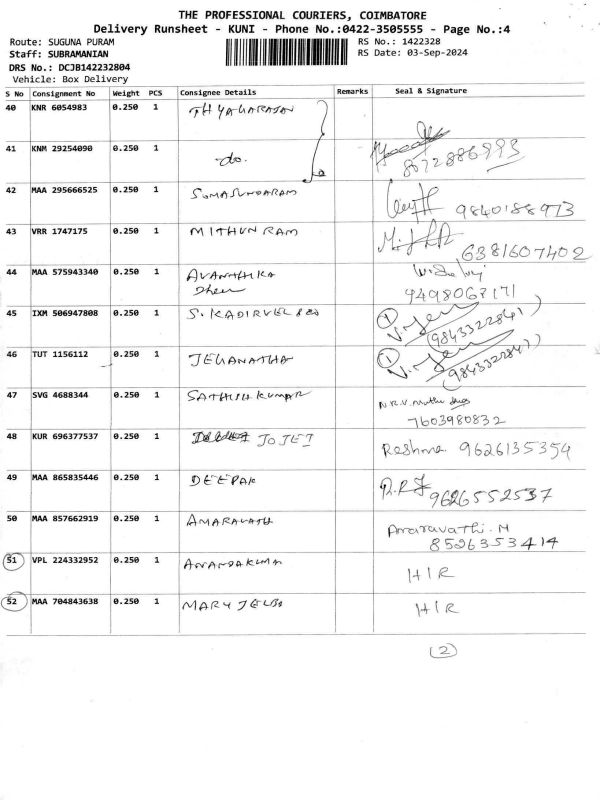 THE PROFESSIONAL COURIERS, COIMBATORE
Delivery Runsheet - KUNI - Phone No.:0422-3505555 - Page No.:4
Route: SUGUNA PURAM RS No.: 1422328
Staff: SUBRAMANIAN RS Date: 03-Sep-2024
DRS No.: DCJB142232804
Vehicle: Box Delivery
S No Consignment No Weight PCS Consignee Details Remarks Seal & Signature
40 KNR 6054983 0.250 1 THYAGARAJAN
41 KNM 29254090 0.250 1 -do. 8072886993
42 MAA 295666525 0.250 1 SOMASUNDARAM 9840188973
43 VRR 1747175 0.250 1 MITHUN RAM 6381607402
44 MAA 575943340 0.250 1 AVANTHIKA
9498067171
45 IXM 506947808 0.250 1 S. KADIRVEL 1 9843322841
46 TUT 1156112 0.250 1 JEGANATHA 1 9843322841
47 SVG 4688344 0.250 1 SATHISH KUMAR N.R.V. Muthu
7603980832
48 KUR 696377537 0.250 1 JOJET Reshma 9626135354
49 MAA 865835446 0.250 1 DEEPAK 9626552537
50 MAA 857662919 0.250 1 AMARAVATH Amaravathi. M
8526353414
51 VPL 224332952 0.250 1 ANANDAKUMA H/R
52 MAA 704843638 0.250 1 MARY H/R
2